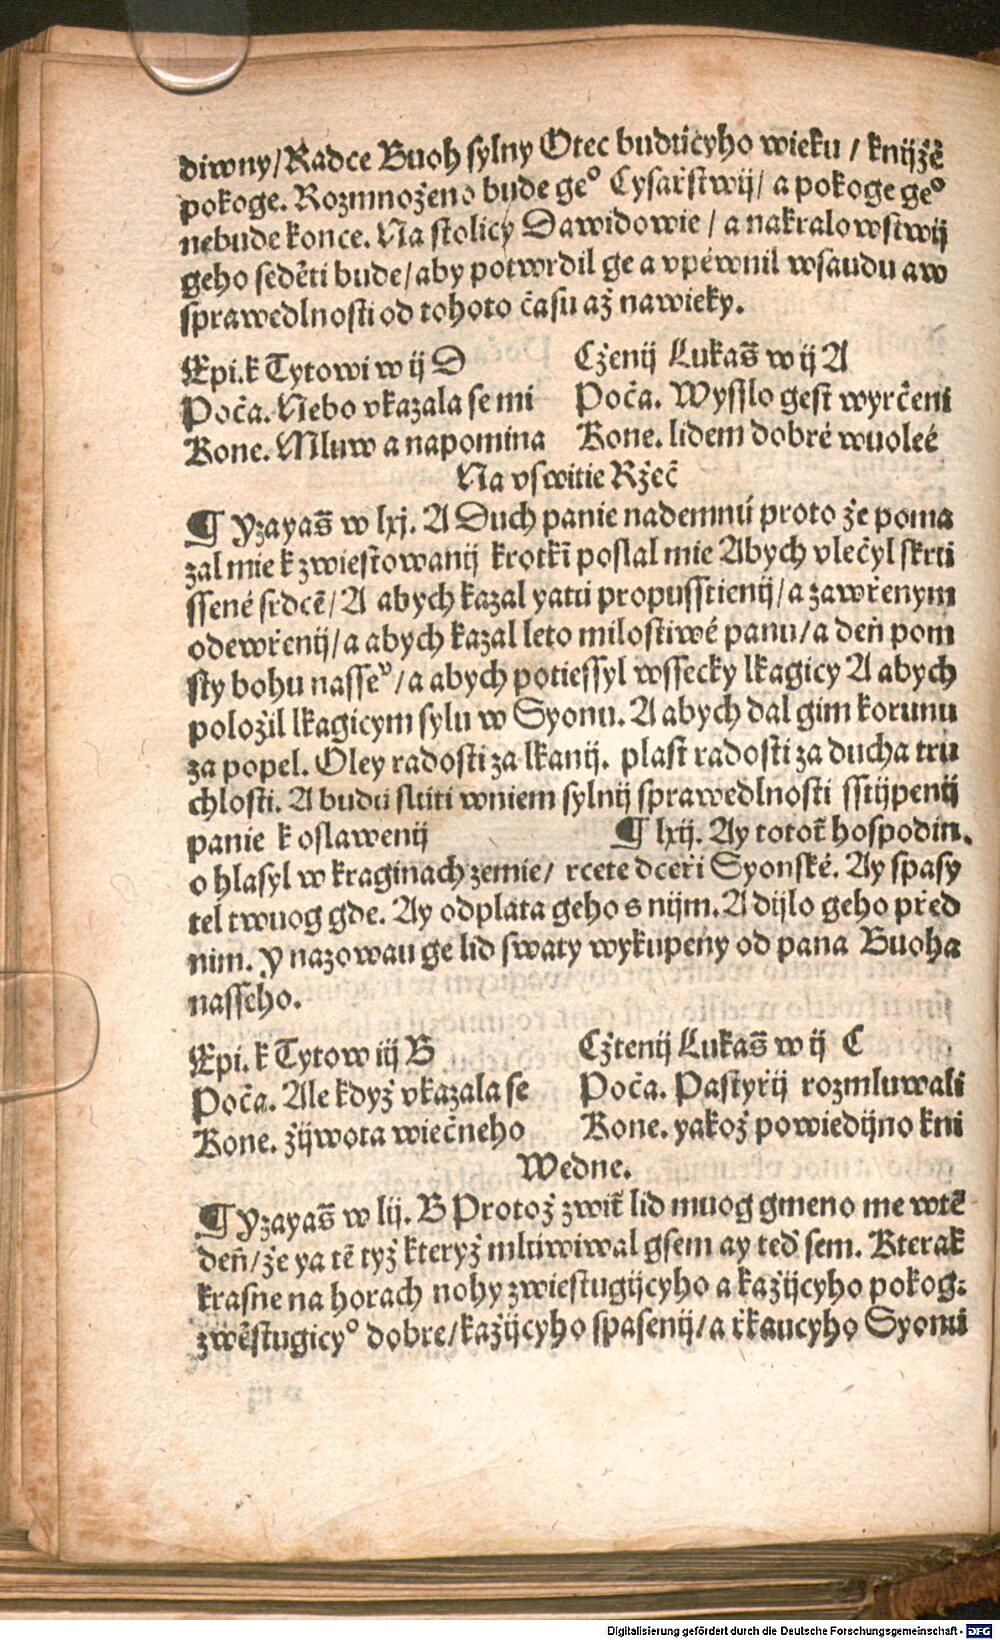 diwny/Radce Buoh sylny Otec budúcyho wieku / knijžě
pokoge. Rozmnoženo bude ge° Cysařstwij/ a pokoge ge°
nebude konce. Na stolicy Dawidowie / a nakralowstwij
geho seděti bude/aby potwrdil ge a vpéwnil wsaudu a w
sprawedlnosti od tohoto času až nawieky.
Epi.k Tytowi w ij D
Poča. Nebo vkazala se mi
Kone. Mluw a napomina
Cženij Lukaš w ij A
Poča. Wysslo gest wyrčeni
Kone. lidem dobré wuoleé
Na vswitie Ržeč
¶ Yzayaš w lxj. A Duch panie nademnú proto že poma
zal mie k zwiestowanij krotkī poslal mie Abych vlečyl skrú
ssené srdcě/A abych kazal yatú propusstienij/a zawřenym
odewřenij/a abych kazal leto milostiwé panu/a deň pom
sty bohu nasseᵛ/a abych potiessyl wssecky lkagicy A abych
položil lkagicym sylu w Syonu. A abych dal gim korunu
za popel. Oley radosti za lkanij. plast radosti za ducha tru
chlosti. A budú slúti wniem sylnij sprawedlnosti sstijpenij
panie k oslawenij
¶ lxij. Ay totoť hospodin.
o hlasyl w kraginach zemie/ rcete dceři Syonské. Ay spasy
tel twuog gde. Ay odplata geho s nijm. A dijlo geho před
nim. Y nazowau ge lid swaty wykupeny od pana Buoha
nasseho.
Epi. k Tytow iij B
Poča. Ale když vkazala se
Kone. žijwota wiečneho
Cžtenij Lukaš w ij C
Poča. Pastyřij rozmluwali
Kone. yakož powiedijno kni
Wedne.
¶ Yzayaš w lij. B Protož zwiť lid muog gmeno me wtē
deň/že ya tē týž kteryž mluwiwal gsem ay teď sem. Kterak
krasne na horach nohy zwiestugijcyho a kažijcyho pokog:
zwěstugicy° dobre/kažijcyho spasenij/a řkaucyho Syonu
Digitalisierung gefördert durch die Deutsche Forschungsgemeinschaft - DFG